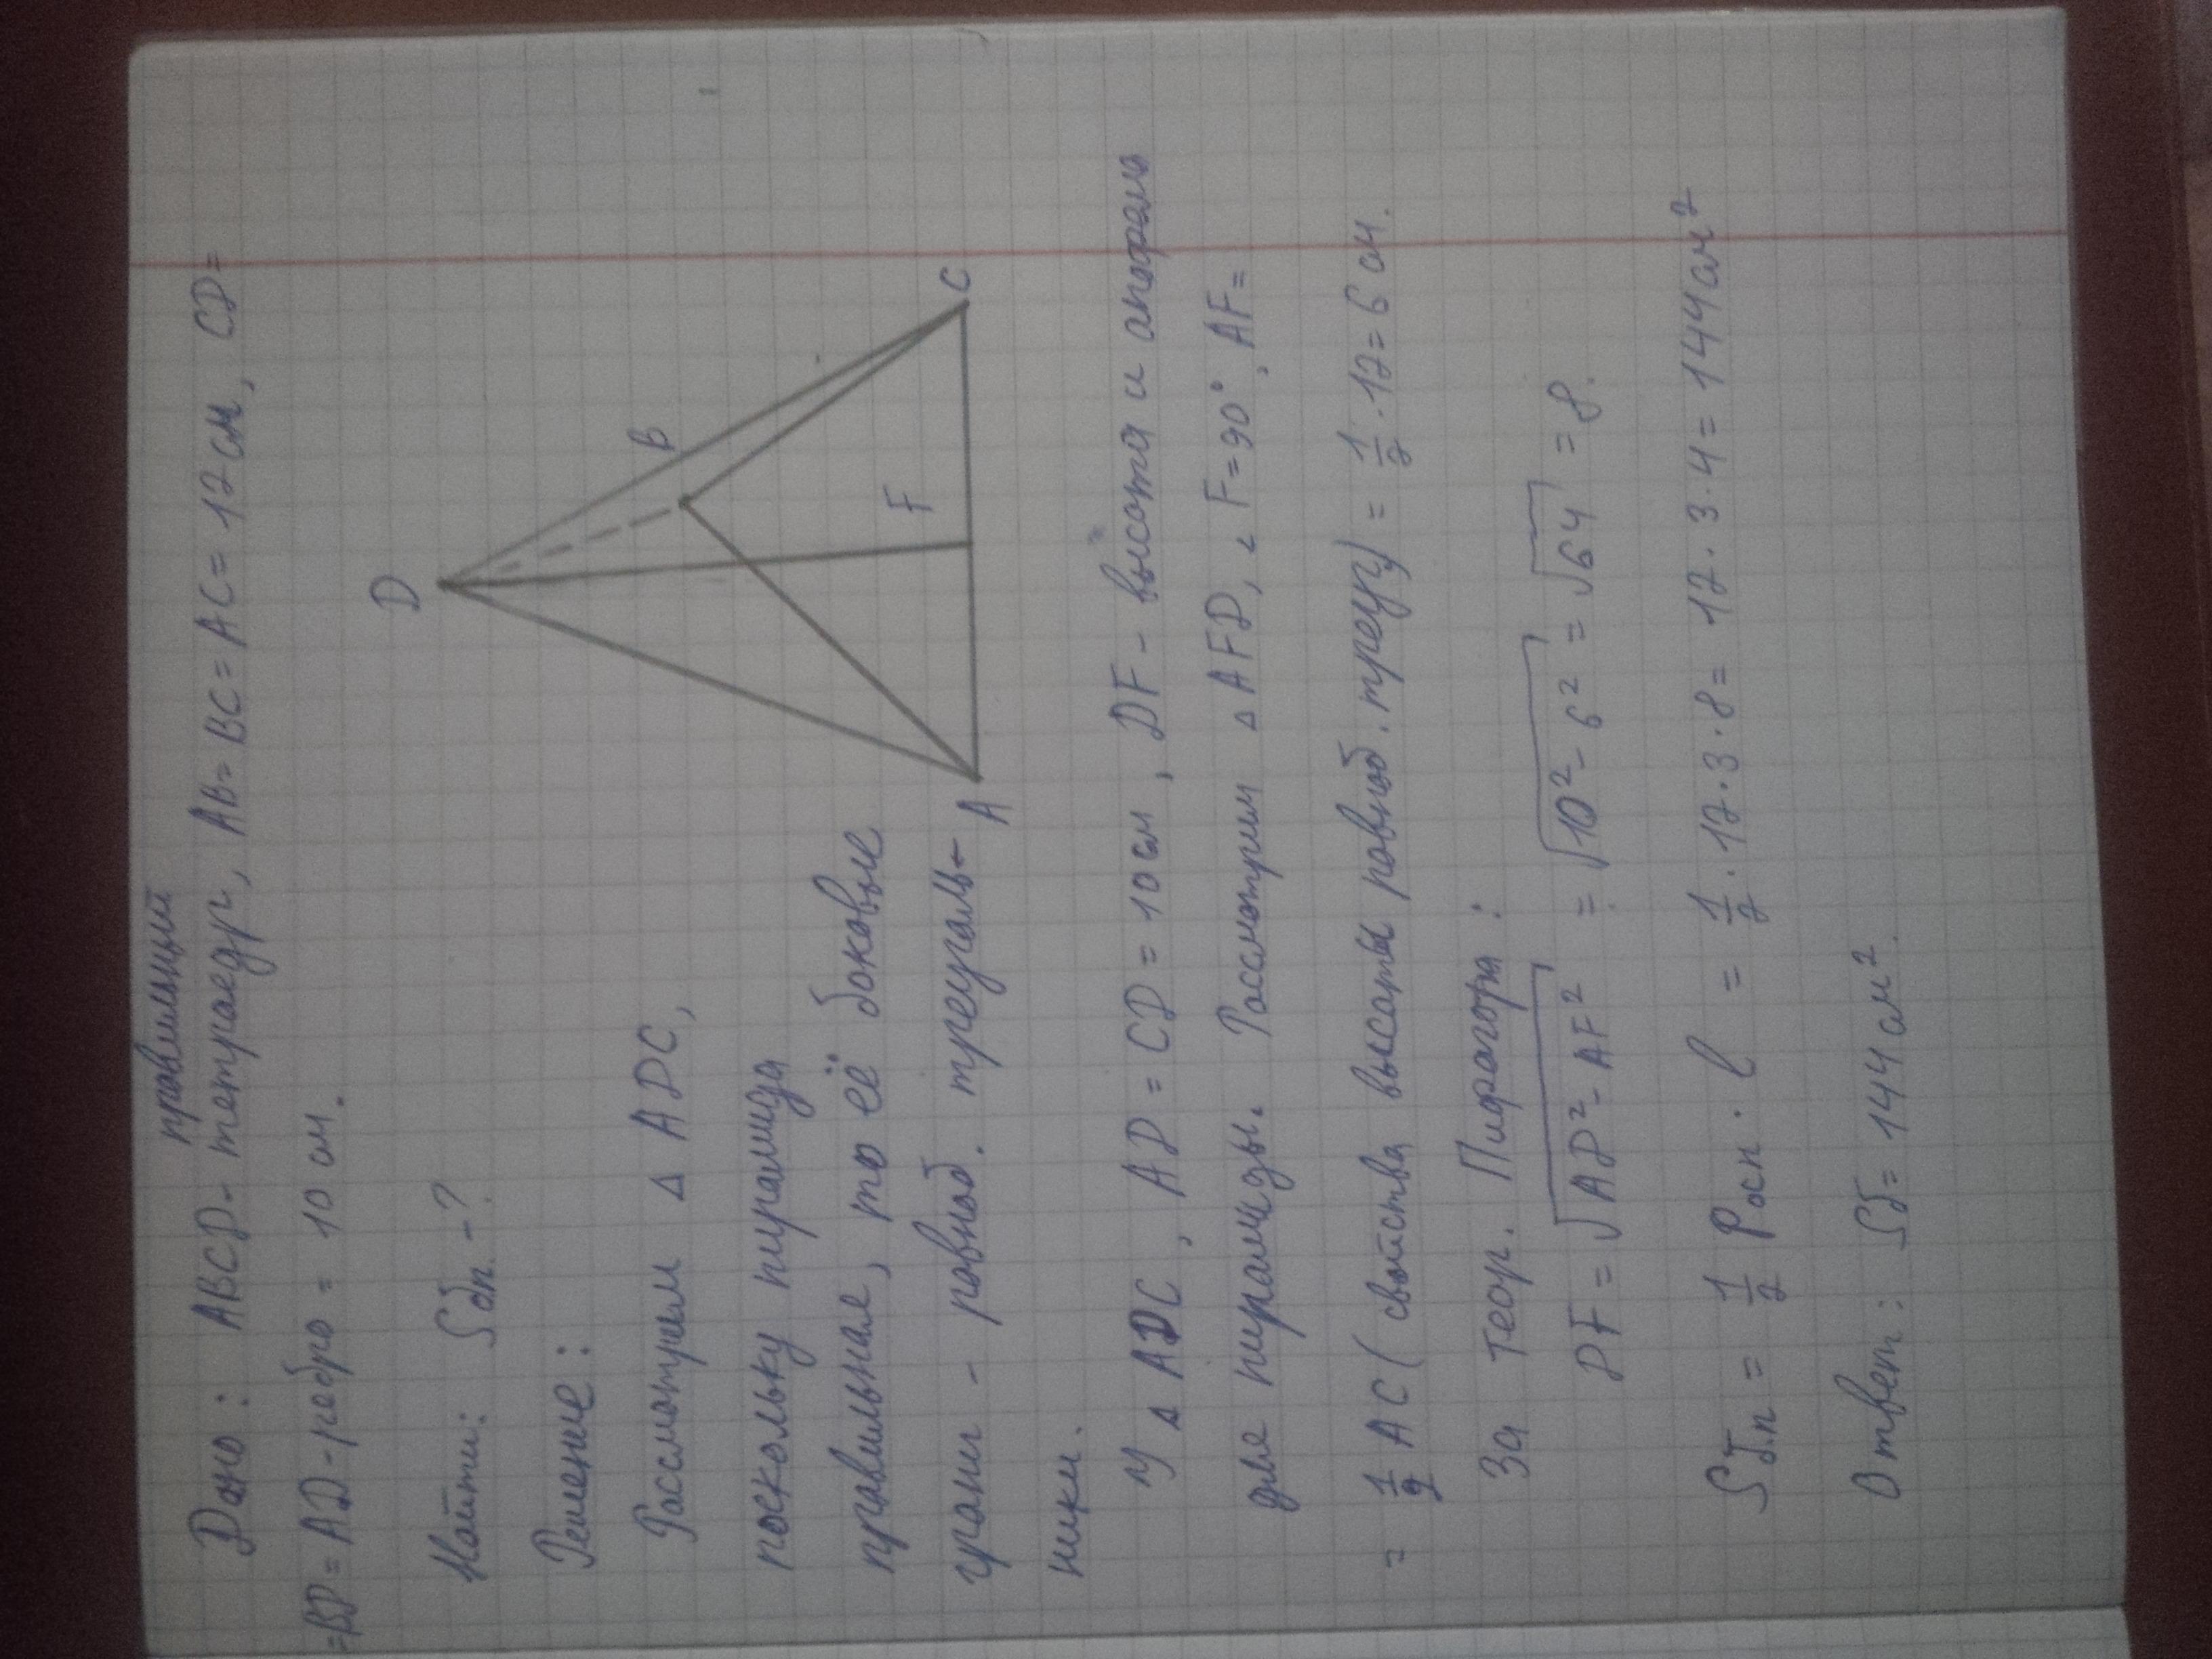 правильний
Дано: ABCD - тетраедр, AB = BC = AC = 12 см, CD =
= BD = AD - ребро = 10 см.
Найти: Sбп. - ?
D
B
F
A
C
Решение:
Рассмотрим △ ADC,
поскольку пирамида
правильная, то её боковые
грани - равноб. треуголь-
ники.
У △ ADC, AD = CD = 10 см, DF - высота и апофема
для пирамиды. Рассмотрим △ AFD, ∠ F = 90°, AF =
= 1/2 AC (свойства высоты равноб. треуг) = 1/2 · 12 = 6 см.
За теор. Пифагора:
DF = √AD² - AF² = √10² - 6² = √64 = 8.
Sб.п = 1/2 Pосн · l = 1/2 · 12 · 3 · 8 = 12 · 3 · 4 = 144 см²
Ответ: Sб = 144 см².